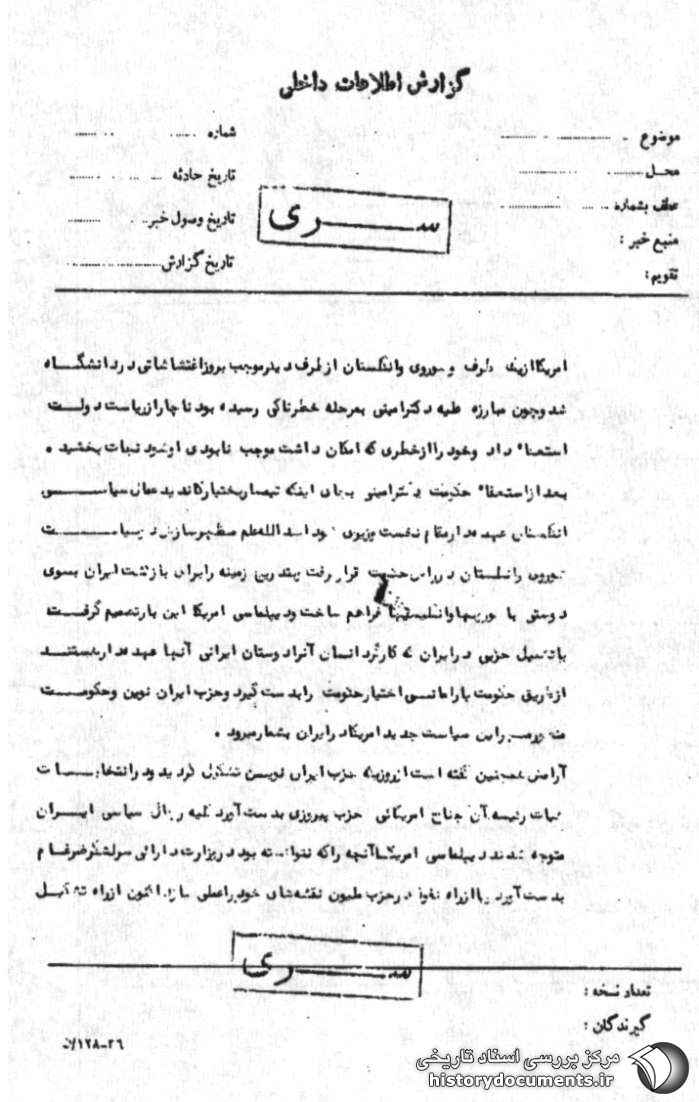 گزارش اطلاعات داخلی
موضوع
شماره
محل
تاریخ حادثه
عطف بشماره
تاریخ وصول خبر
منبع خبر :
تاریخ گزارش
تقویم :
سری
امریکا ازیک طرف و شوروی وانگلستان ازطرف دیگر موجب بروز اغتشاشاتی در دانشگاه
شد وچون مبارزه علیه دکترامینی بمرحله خطرناکی رسیده بود ناچار ازریاست دولت
استعفاء داد وخود را ازخطری که امکان داشت موجب نابودی او شود نجات بخشید .
بعد ازاستعفاء حکومت دکترامینی بجای اینکه تیمسار بختیار کاندیدهای سیاسی
انگلستان عهده دار مقام نخست وزیری شود اسدالله علم مظهر سازش سیاست
شوروی وانگلستان درراس حکومت قرار گرفت زمینه رابرای بازگشت ایران بسوی
دوستی با فراهم ساخت ودیپلماسی امریکا این بار تصمیم گرفت
باتشکیل حزبی درایران که کارگردانان آنرا دوستان ایرانی آنها عهده دار هستند
ازطریق حکومت پارلمانی اختیار حکومت رابدست گیرد وحزب ایران نوین وحکومت
منصور مسیر این سیاست جدید امریکا درایران بشمار میرود .
آرامش همچنین گفته است ازروزیکه حزب ایران نوین تشکیل گردید ودر انتخابات
هیات رئیسه آن جناح امریکائی حزب پیروزی بدست آورد کلیه رجال سیاسی ایران
متوجه شدند دیپلماسی امریکا آنچه راکه نتوانسته بود در وزارت دارائی سرلشگر ضرغام
بدست آورد یا ازراه نفوذ درحزب ملیون نقشه های خود را عملی سازد اکنون ازراه تشکیل
سری
تعداد نسخه :
گیرندگان :
۱۲۸-۲۶
مرکز بررسی اسناد تاریخی
historydocuments.ir